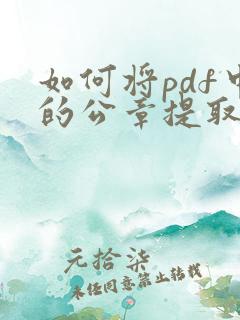 如何将pdf中
的公章提取
元拾柒
未经同意禁止转载